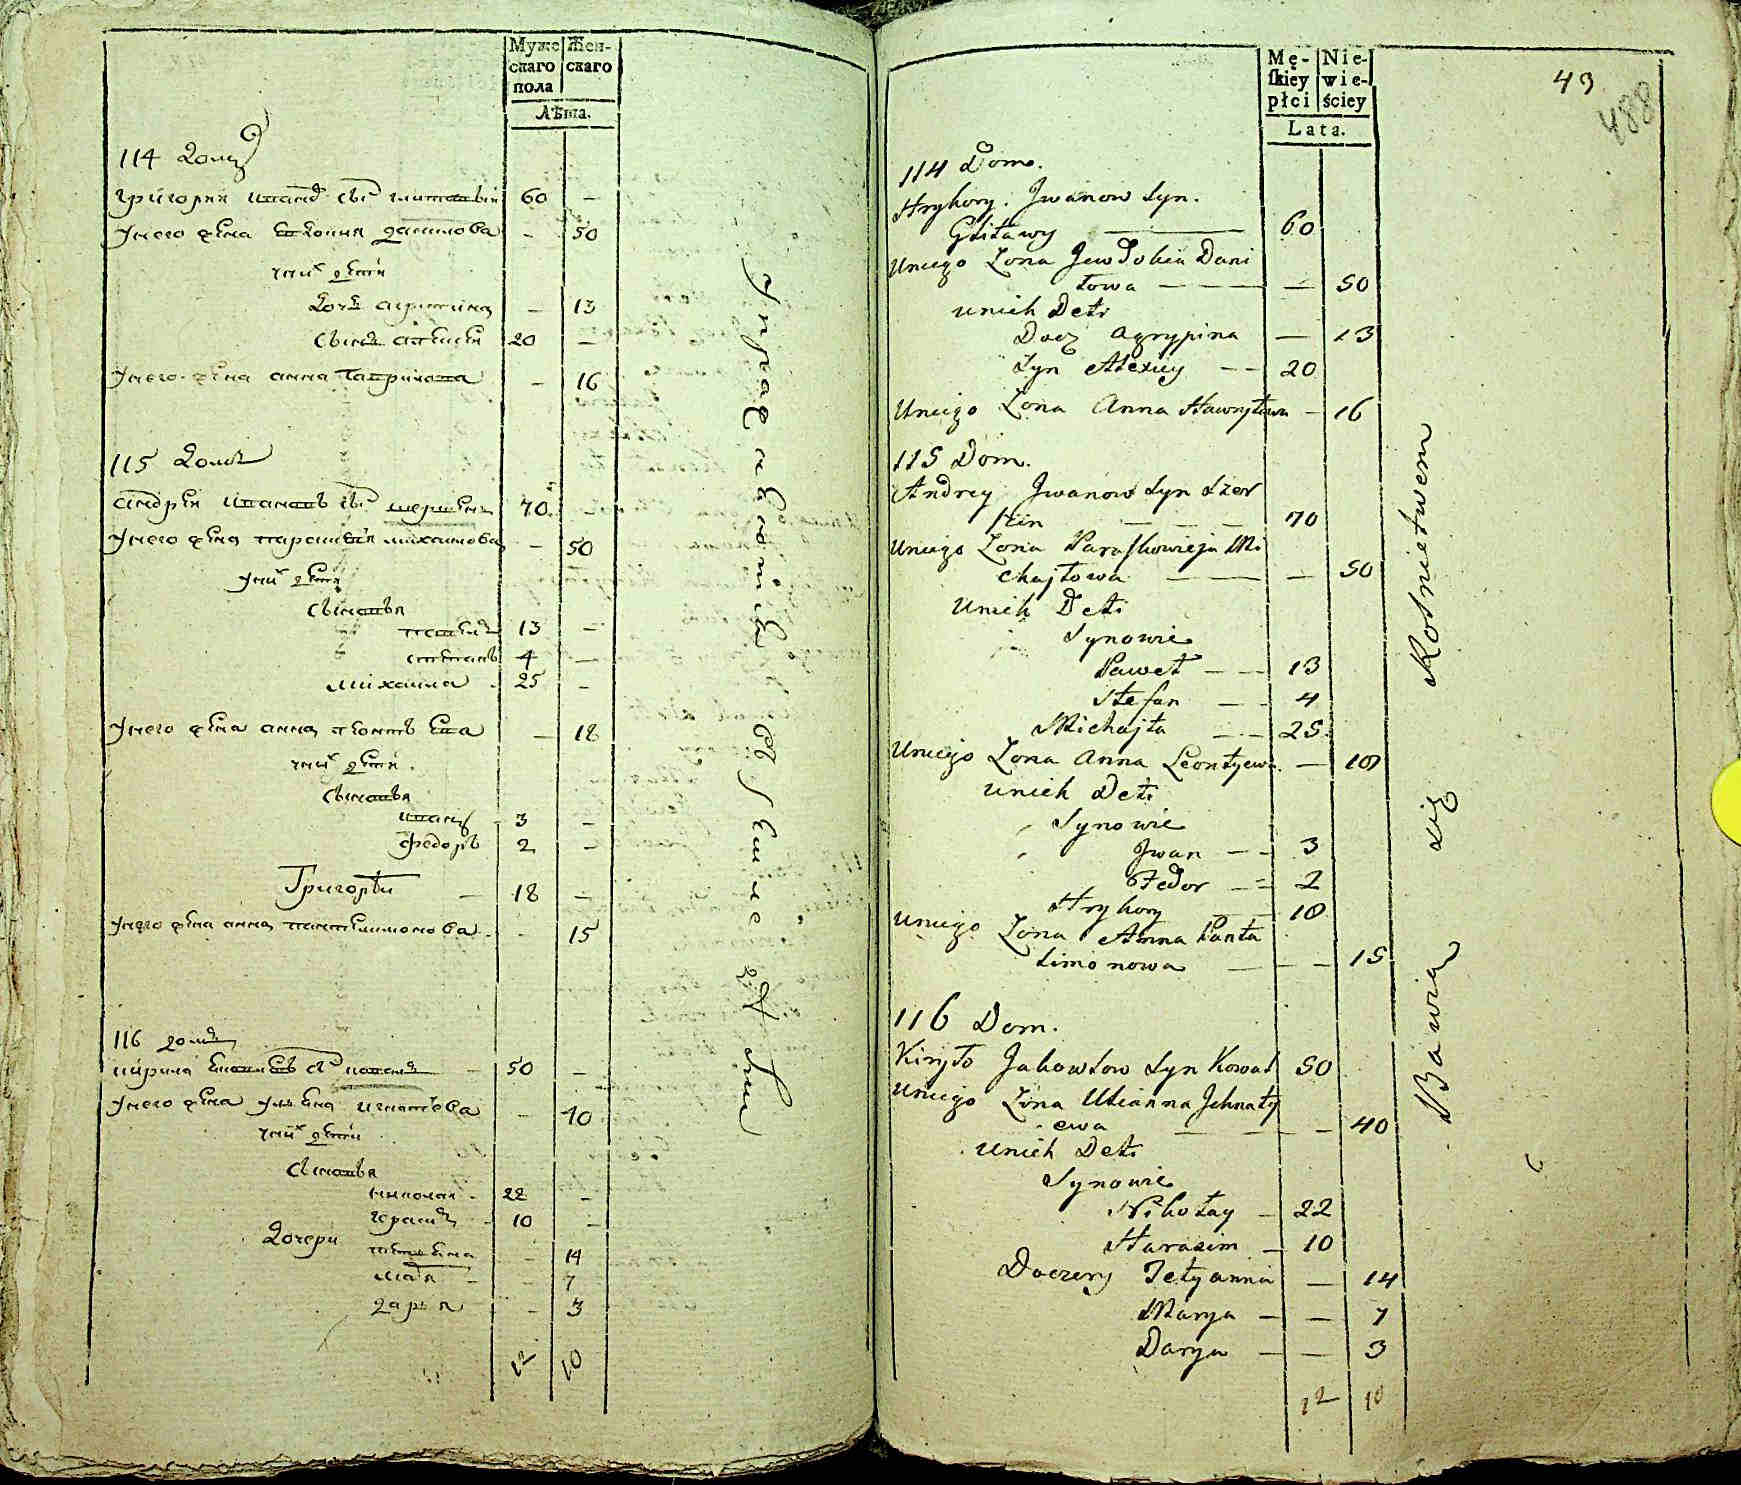 Муже
скаго
пола
Жен-
скаго
Лѣта.
114 домъ
григорий иванов сын глитавый 60 —
у него жена евдокия данилова — 50
у них дети
дочь агрипина — 13
сынъ алексей 20 —
у него жена анна гаврилова — 16
115 домъ
андрей ивановъ сын 70 —
у него жена парасковия михайлова — 50
у них дети
сыновья
павелъ 13 —
степанъ 4 —
михайла 25 —
у него жена анна леонтьева — 18
у них дети
сыновья
иванъ 3 —
федоръ 2 —
Григорей — 18 —
у него жена анна пантелимонова — 15
116 домъ
кирила сын коваль 50 —
у него жена ульяна игнатьева — 40
у них дети
сыновья
николай 22 —
герасимъ 10 —
дочери татьяна — 14
марья — 7
дарья — 3
12 10
Mę-
skiey
płci
Nie-
wie-
ściey
Lata.
43
488
114 Dom.
Hryhory Jwanow Syn.
Glitawy 60
Uniego Zona Jewdokia Dani
łowa — — 50
unich Deti
Docz Agrypina — 13
Syn Alexiey — 20
Uniego Zona Anna Hawryłowa — 16
115 Dom.
Andrey Jwanow Syn Szer
szin — 70
Uniego Zona Paraskowieja Mi
chayłowa — — 50
Unich Deti
Synowie
Paweł — 13
Stefan — 4
Michayła — 25
Uniego Zona Anna Leontyewa — 18
unich Deti
Synowie
Jwan — 3
Fedor — 2
Hryhory — 18
Uniego Zona Anna Panta
limonowa — — 15
116 Dom.
Kiryło Jakowlow Syn Kowal 50
Uniego Zona Ulianna Jchnaty
ewa — — 40
Unich Deti
Synowie
Nikołay — 22
Harasim — 10
Doczery Tetyanna — 14
Marya — — 7
Darya — — 3
12 10
Bawią się Rolnictwem